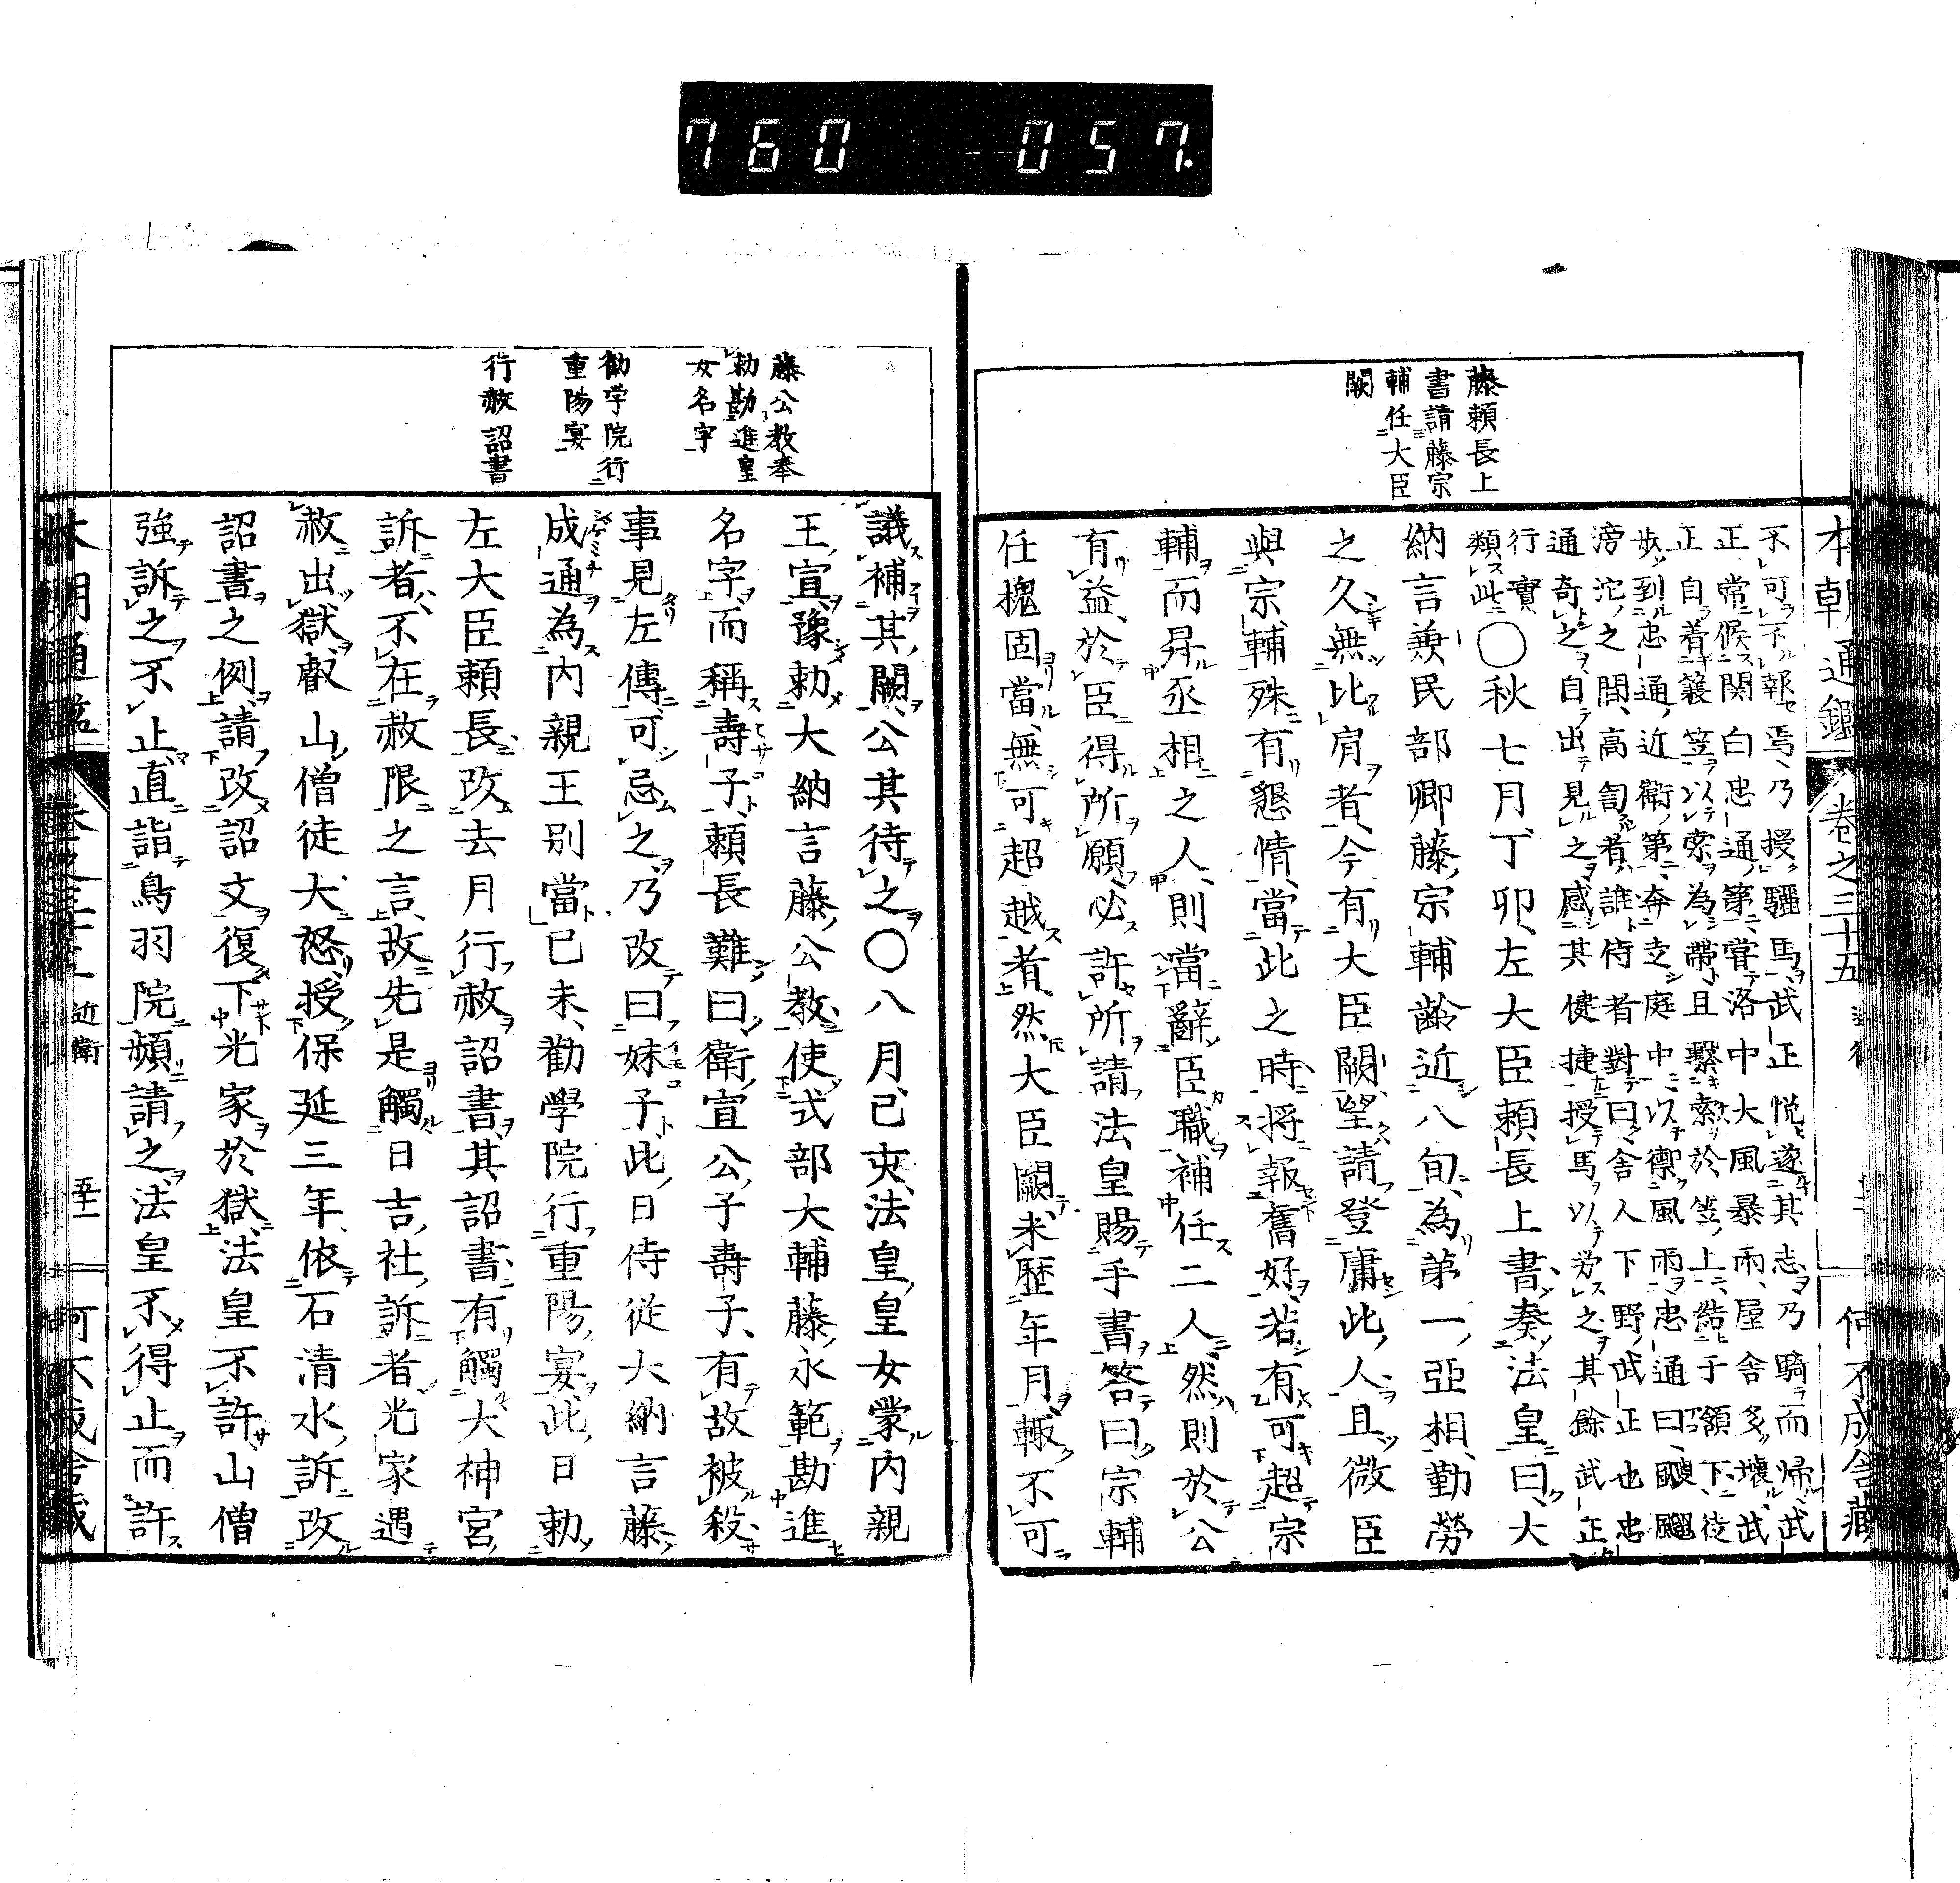 760 057
本朝通鑑 卷之三十五 何不成舍藏
藤頼長上
書請藤宗
輔任大臣
闕
不可不報焉乃授驪馬武正悅遂其志乃騎而歸武
正常候関白忠通第嘗洛中大風暴雨屋舍多壞武
正自着簑笠以索為帶且繫索於笠上結于頷下徒
步到忠通近衛第奔走庭中以禦風雨忠通曰風
滂沱之間高訇者誰侍者對曰舍人下野武正也忠
通奇之自出見之感其健捷授馬以勞之其餘武正
行實
類此〇秋七月丁卯左大臣頼長上書奏法皇曰大
納言兼民部卿藤宗輔齡近八旬為第一亞相勤勞
之久無比肩者今有大臣闕望請登庸此人且微臣
與宗輔殊有懇情當此之時將報舊好若有可超宗
輔而昇丞相之人則當辭臣職補任二人然則於公
有益於臣得所願必許所請法皇賜手書答曰宗輔
任槐固當無可超越者然大臣闕未歷年月輙不可
藤公教奉
勅勘進皇
女名字
勸学院行
重陽宴
行赦詔書
議補其闕公其待之〇八月己亥法皇皇女蒙内親
王宣豫勅大納言藤公教使式部大輔藤永範勘進
名字而稱壽子頼長難曰衛宣公子壽子有故被殺
事見左傳可忌之乃改曰妹子此日侍從大納言藤
成通為内親王別當已未勸學院行重陽宴此日勅
左大臣頼長改去月行赦詔書其詔書有觸大神宮
訴者不在赦限之言故先是觸日吉社訴者光家遇
赦出獄叡山僧徒大怒授保延三年依石清水訴改
詔書之例請改詔文復下光家於獄法皇不許山僧
強訴之不止直詣鳥羽院頻請之法皇不得止而許
本朝通鑑 近衛 何不成舍藏